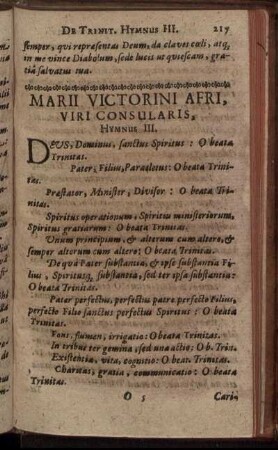 DE TRINIT. HYMNUS III. 217
semper, qui repræsentas Deum, da claves cœli, atq;
in me vince Diabolum, sede lucis ut quiescam, gra-
tiâ salvatus tua.
MARII VICTORINI AFRI,
VIRI CONSULARIS,
HYMNUS III.
DEUS, Dominus, sanctus Spiritus: O beata
Trinitas.
Pater, Filius, Paracletus: O beata Trini-
tas.
Præstator, Minister, Divisor: O beata Tri-
nitas.
Spiritus operationum, Spiritus ministeriorum,
Spiritus gratiarum: O beata Trinitas.
Unum principium, & alterum cum altero, &
semper alterum cum altero: O beata Trinitas.
De quâ Pater substantia, & ipse substantia Fi-
lius, Spiritusq, substantia, sed ter ipsa substantia:
O beata Trinitas.
Pater perfectus, perfectus patre perfecto Filius,
perfecto Filio sanctus perfectus Spiritus: O beata
Trinitas.
Fons, flumen, irrigatio: O beata Trinitas.
In tribus ter gemina, sed una actio: O b. Trin.
Existentia, vita, cognitio: O beat. Trinitas.
Charitas, gratia, communicatio: O beata
Trinitas.
O 5 Cari-